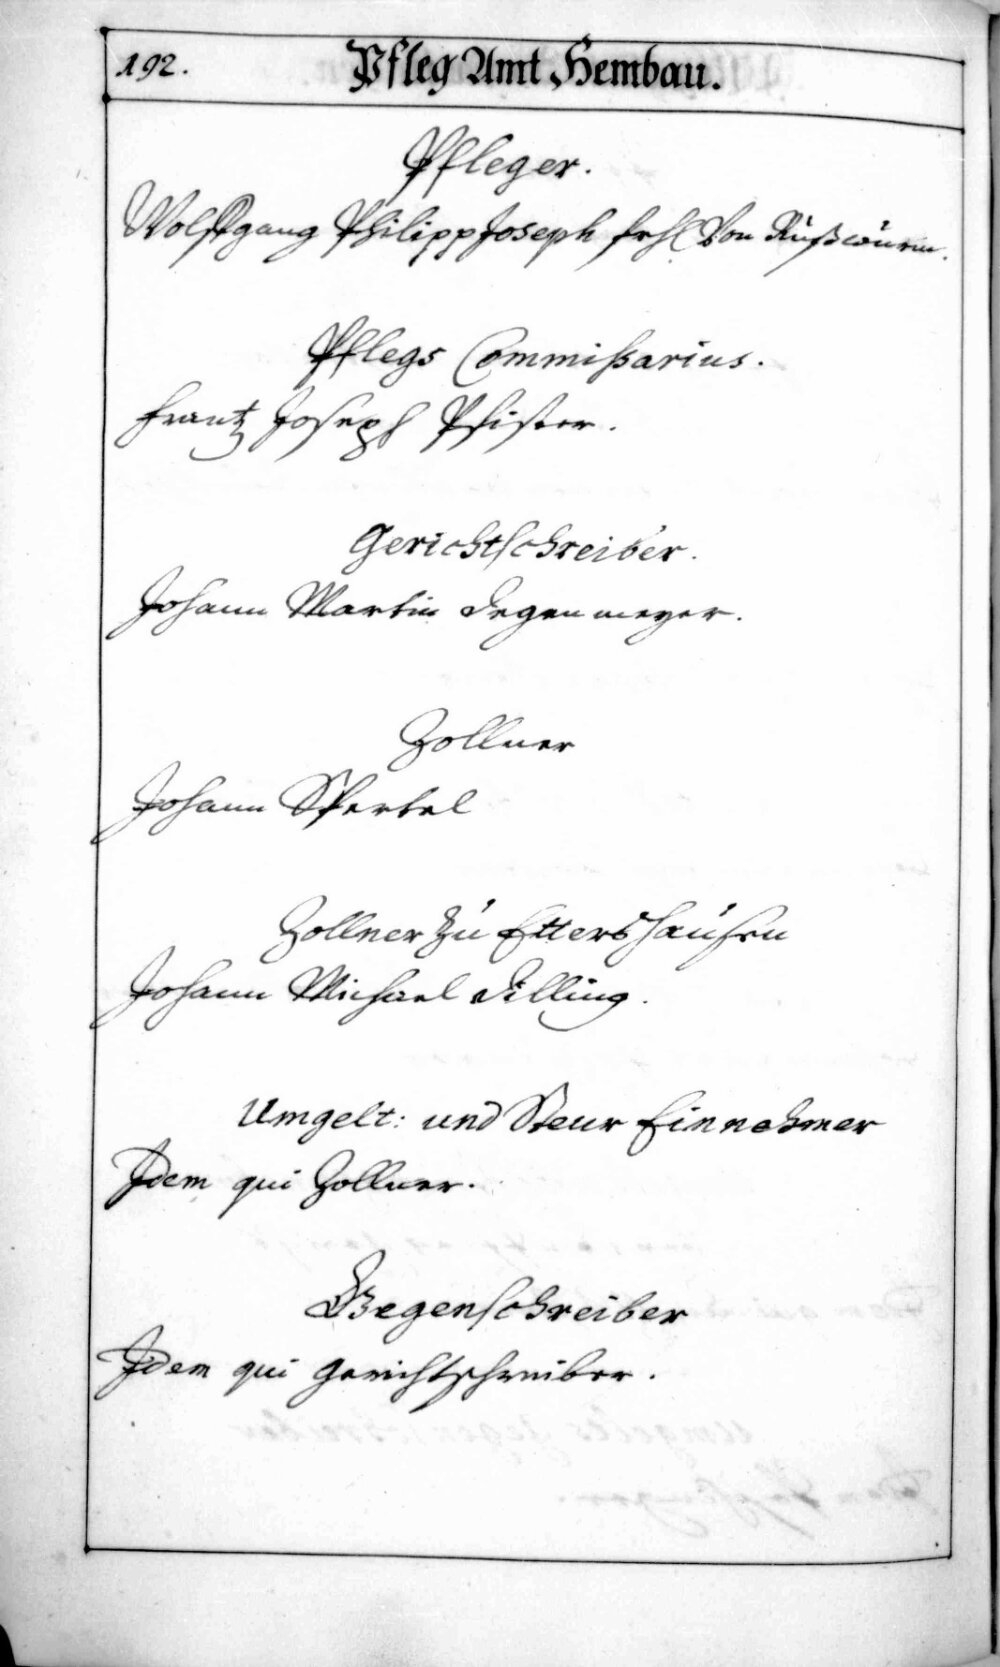 192.
Pfleg Amt Hembau.
Pfleger.
Wolfgang Philipp Joseph frhl Von Rußwurm.
Pflegs Commißarius.
Frantz Joseph Pfister.
Gerichtschreiber.
Johann Martin Degenmeyer.
Zollner
Johann Spertel
Zollner Zu Ettershausen
Johann Michael Dilling.
Umgelt: und Steur Einnehmer
Idem qui Zollner.
Gegenschreiber
Idem qui Gerichtschreiber.